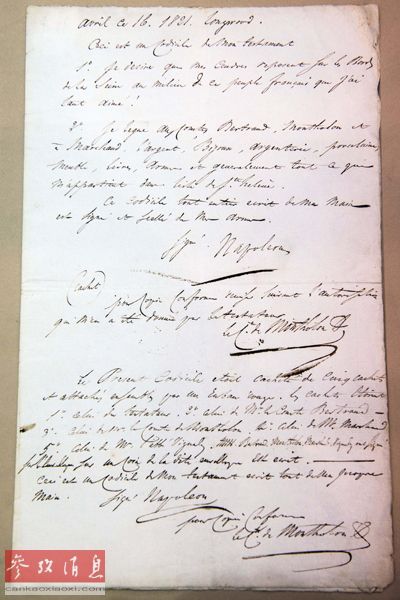 avril ce 16. 1821. Longwood.
Ceci est un Codicile de Mon testament
1° Je désire que mes Cendres reposent sur les Bords
de la Seine au milieu de ce peuple français que j'ai
tant aimé!
2° Je lègue aux Comtes Bertrand, Montholon et
à Marchand, l'argent, Bijoux, argenterie, porcelaine,
Meubles, livres, armes et généralement tout ce qui
m'appartient dans l'isle de Ste hélène.
Ce Codicile tout entier écrit de Ma Main
est signé et scellé de Mes armes.
signé Napoleon
Cachet
pour Copie Conforme
qui m'en a été donné par le testateur
le Ct. de Montholon
Le Présent Codicile était cacheté de Cinq cachets
et attachés ensemble par un ruban rouge. les cachets étaient
1° Celui du testateur. 2° Celui de Mr. le Comte Bertrand
3° Celui de Mr. le Comte de Montholon. 4° Celui de Mr. Marchand
5° Celui de Mr. l'abbé Vignaly.
sur un Coin de la dite enveloppe est écrit.
Ceci est un Codicile de Mon testament écrit tout de Ma propre
Main. signé Napoleon
pour Copie Conforme
le Ct. de Montholon
参考消息
cankaoxiaoxi.com